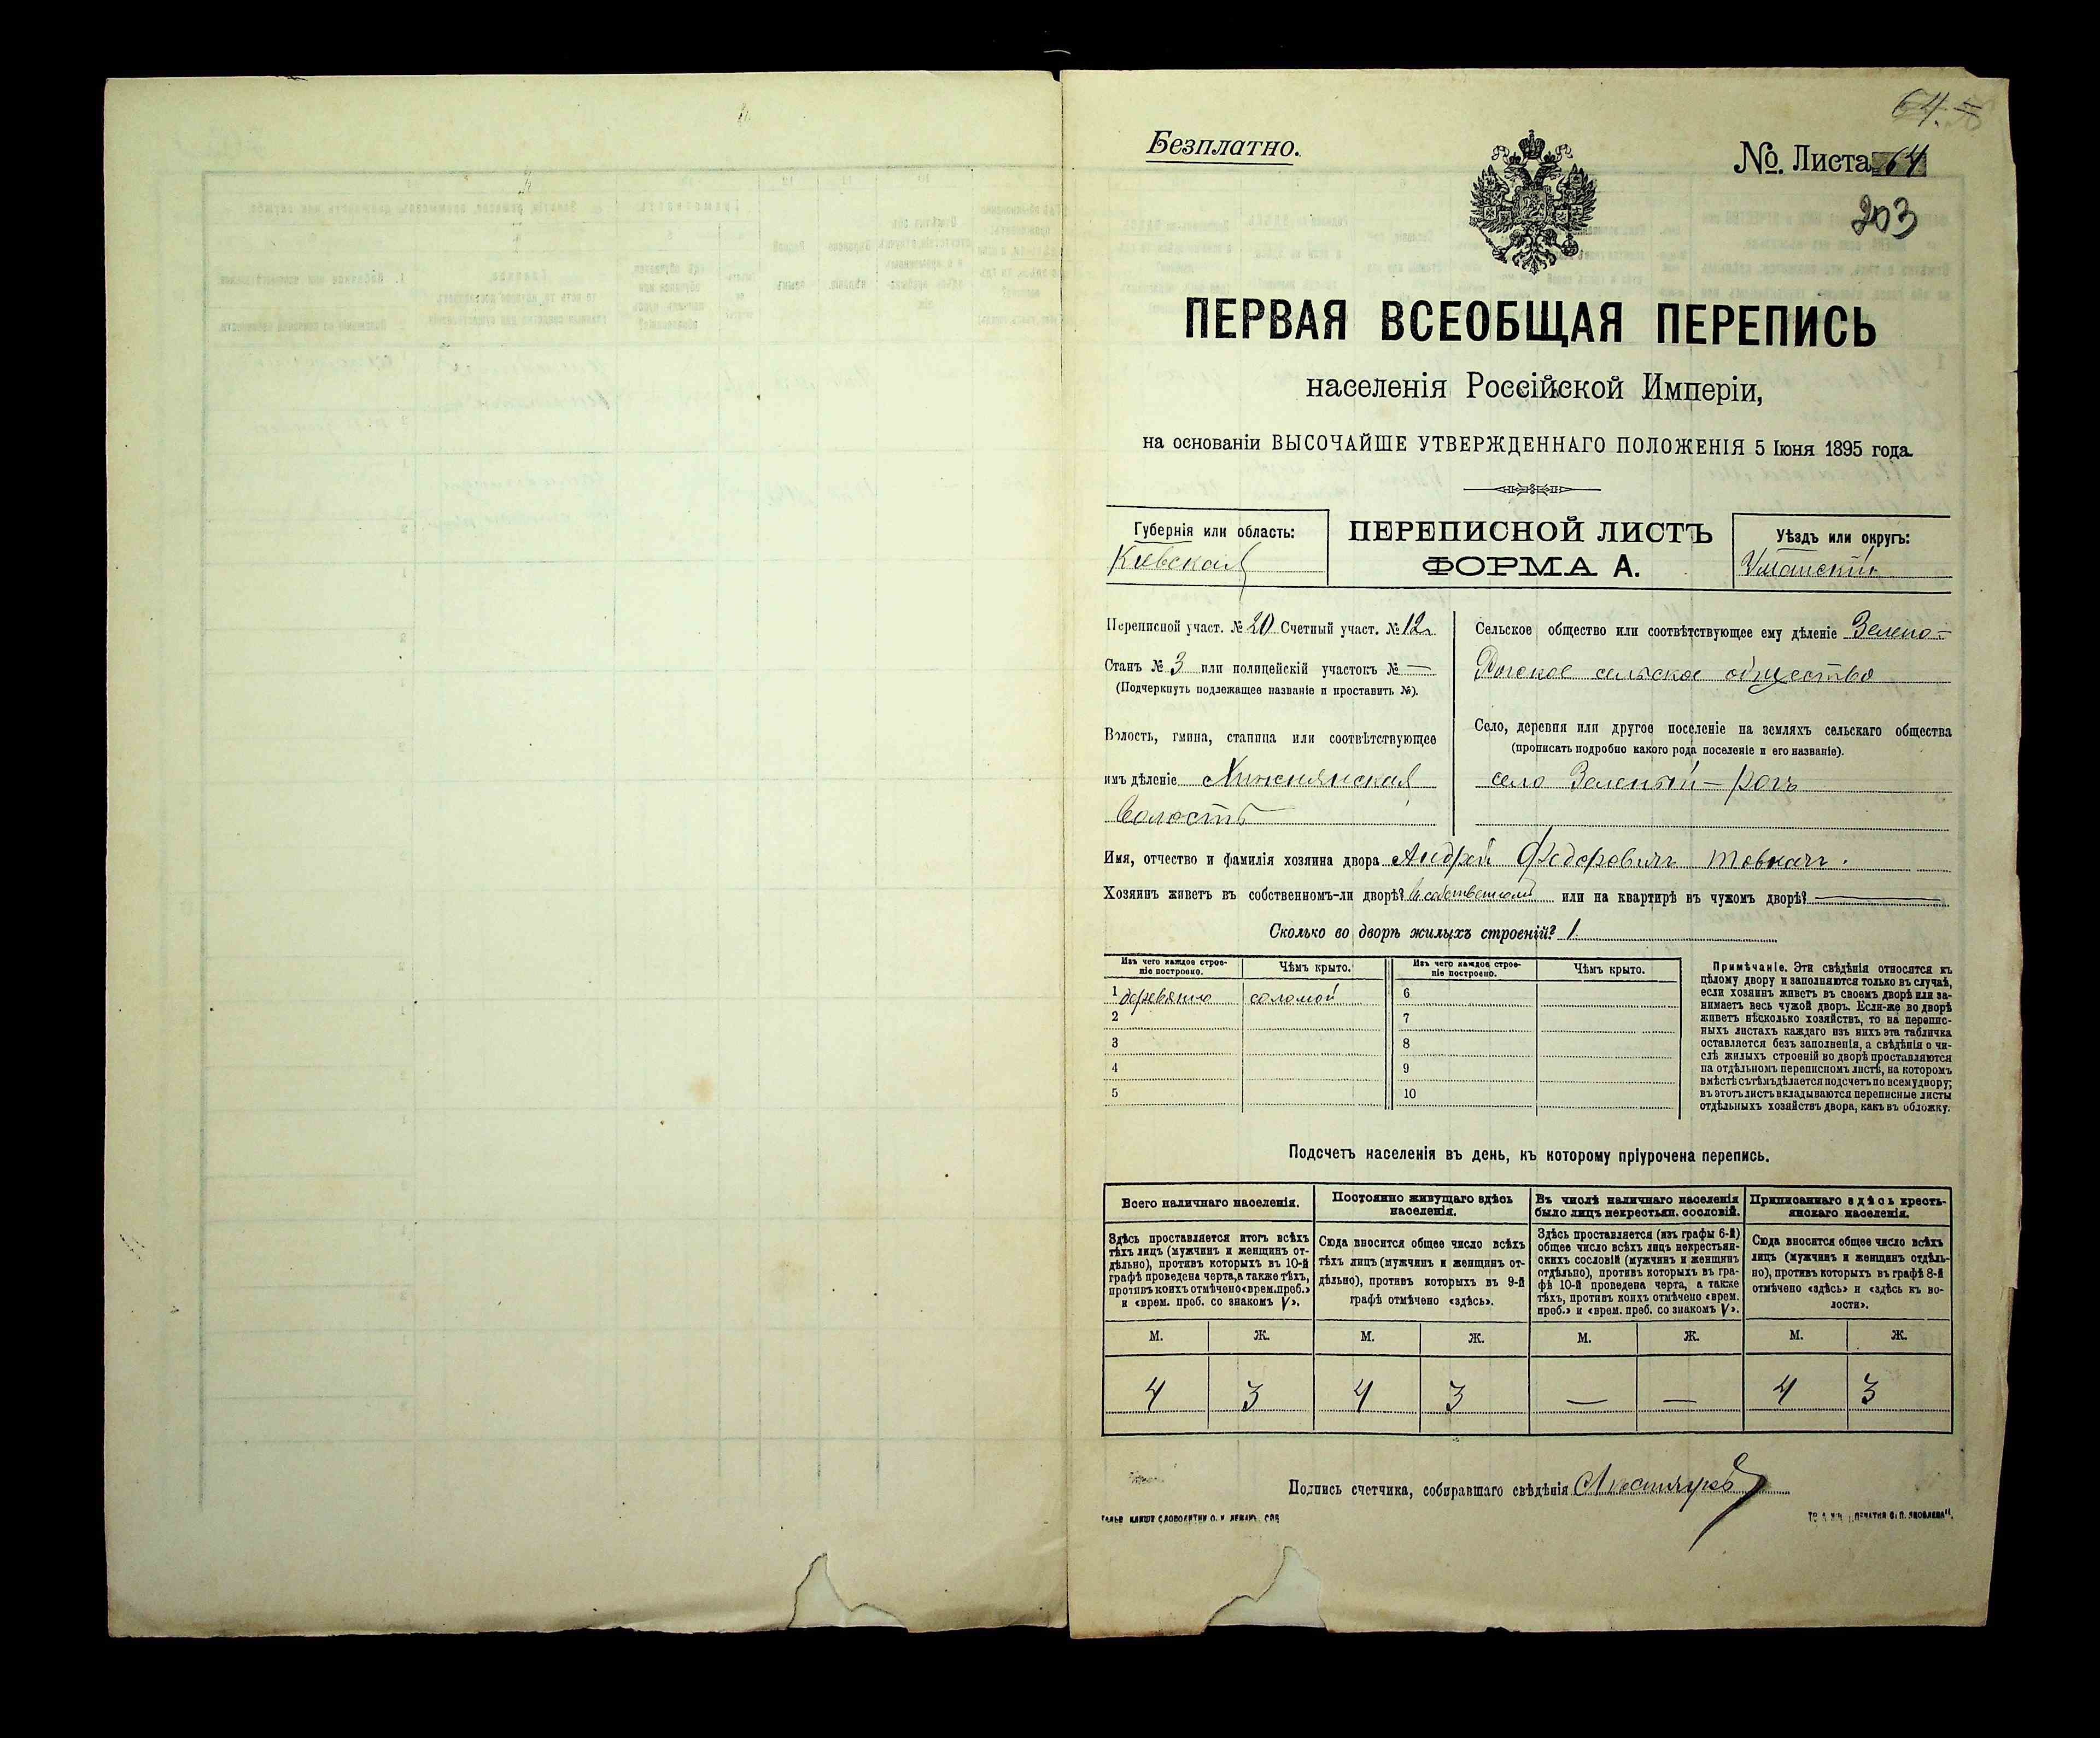 64.
Безплатно.
№. Листа 64
203
ПЕРВАЯ ВСЕОБЩАЯ ПЕРЕПИСЬ
населенія Россійской Имперіи,
на основаніи ВЫСОЧАЙШЕ УТВЕРЖДЕННАГО ПОЛОЖЕНІЯ 5 Іюня 1895 года.
Губернія или область:
Кіевская
ПЕРЕПИСНОЙ ЛИСТЪ
ФОРМА А.
Уѣздъ или округъ:
Уманскій
Переписной участ. № 20 Счетный участ. № 12
Станъ № 3 или полицейскій участокъ № —
(Подчеркнуть подлежащее названіе и проставить №).
Волость, гмина, станица или соотвѣтствующее
имъ дѣленіе
волость
Сельское общество или соотвѣтствующее ему дѣленіе Зелено-
Рогское сельское общество
Село, деревня или другое поселеніе на земляхъ сельскаго общества
(прописать подробно какого рода поселеніе и его названіе).
село Зеленый-Рогъ
Имя, отчество и фамилія хозяина двора Андрей Федоровичъ Товкачъ.
Хозяинъ живетъ въ собственномъ-ли дворѣ? въ собственномъ или на квартирѣ въ чужомъ дворѣ? —
Сколько во дворѣ жилыхъ строеній? 1.
Изъ чего каждое строе-
ніе построено.
Чѣмъ крыто.
Изъ чего каждое строе-
ніе построено.
Чѣмъ крыто.
1 деревянно соломой 6
2 7
3 8
4 9
5 10
Примѣчаніе. Эти свѣдѣнія относятся къ
цѣлому двору и заполняются только въ случаѣ,
если хозяинъ живетъ въ своемъ дворѣ или за-
нимаетъ весь чужой дворъ. Если-же во дворѣ
живетъ нѣсколько хозяйствъ, то на перепис-
ныхъ листахъ каждаго изъ нихъ эта табличка
оставляется безъ заполненія, а свѣдѣнія о чи-
слѣ жилыхъ строеній во дворѣ проставляются
на отдѣльномъ переписномъ листѣ, на которомъ
вмѣстѣ съ тѣмъ дѣлается подсчетъ по всему двору;
въ этотъ листъ вкладываются переписные листы
отдѣльныхъ хозяйствъ двора, какъ въ обложку.
Подсчетъ населенія въ день, къ которому пріурочена перепись.
Всего наличнаго населенія.
Здѣсь проставляется итогъ всѣхъ
тѣхъ лицъ (мужчинъ и женщинъ от-
дѣльно), противъ которыхъ въ 10-й
графѣ проведена черта, а также тѣхъ,
противъ коихъ отмѣчено «врем. преб.»
и «врем. преб. со знакомъ V».
Постоянно живущаго здѣсь
населенія.
Сюда вносится общее число всѣхъ
тѣхъ лицъ (мужчинъ и женщинъ от-
дѣльно), противъ которыхъ въ 9-й
графѣ отмѣчено «здѣсь».
Въ числѣ наличнаго населенія
было лицъ некрестьян. сословій.
Здѣсь проставляется (изъ графы 6-й)
общее число всѣхъ лицъ некрестьян-
скихъ сословій (мужчинъ и женщинъ
отдѣльно), противъ которыхъ въ гра-
фѣ 10-й проведена черта, а также
тѣхъ, противъ коихъ отмѣчено «врем.
преб.» и «врем. преб. со знакомъ V».
Приписаннаго здѣсь кресть-
янскаго населенія.
Сюда вносится общее число всѣхъ
лицъ (мужчинъ и женщинъ отдѣль-
но), противъ которыхъ въ графѣ 8-й
отмѣчено «здѣсь» и «здѣсь къ во-
лости».
М. Ж. М. Ж. М. Ж. М. Ж.
4 3 4 3 — — 4 3
Подпись счетчика, собиравшаго свѣдѣнія